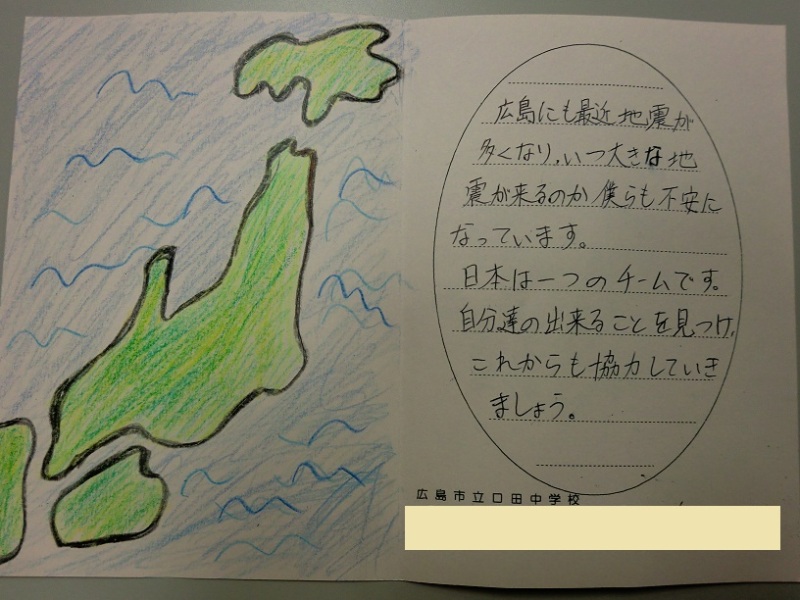 広島にも最近地震が
多くなり、いつ大きな地
震が来るのか僕らも不安に
なっています。
日本は一つのチームです。
自分達の出来ることを見つけ、
これからも協力していき
ましょう。
広島市立口田中学校